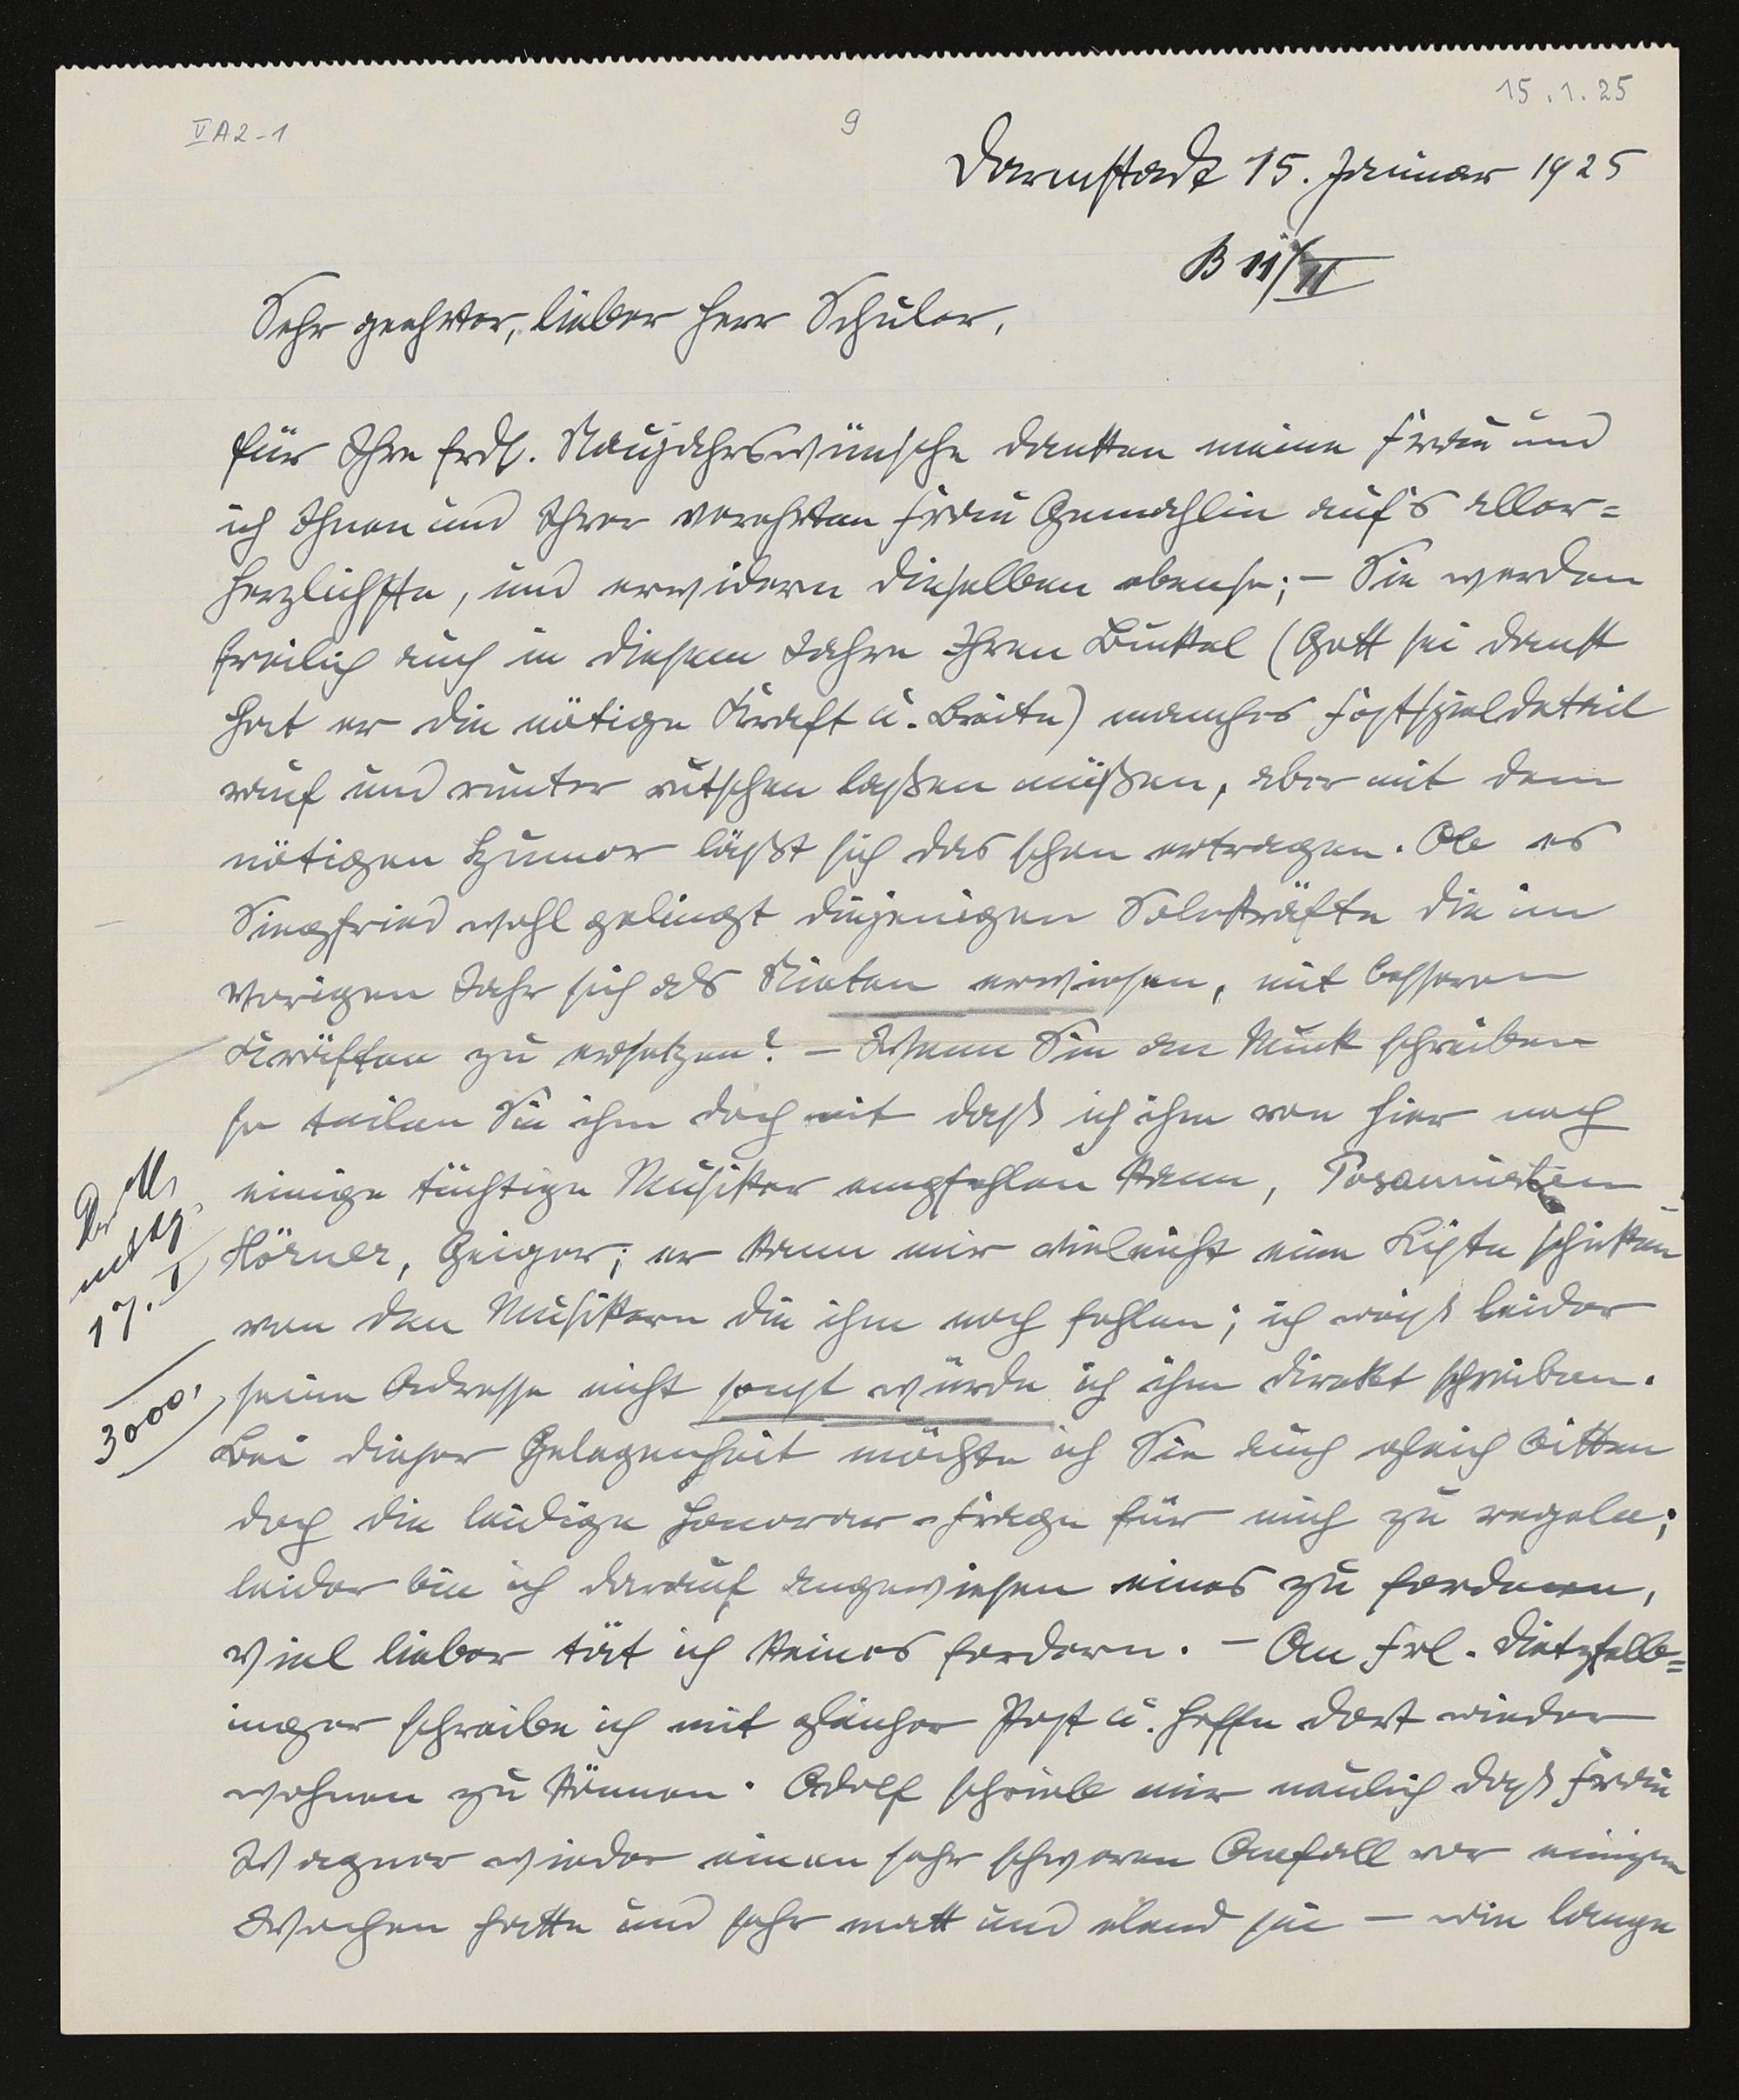 15.1.25
VA2-1
9
Darmstadt 15. Januar 1925
B 11/II
Sehr geehrter, lieber Herr Schuler,
für Ihre frdl. Neujahrswünsche danken meine Frau und
ich Ihnen und Ihrer verehrten Frau Gemahlin auf's aller=
herzlichste, und erwidern dieselben ebenso; – Sie werden
freilich auch in diesem Jahre Ihren Buckel (Gott sei dank
hat er die nötige Kraft u. Breite) manches Festspieldetail
rauf und runter rutschen laßen müßen, aber mit dem
nötigen Humor läßt sich das schon ertragen. Ob es
Siegfried wohl gelingt diejenigen Solokräfte die im
vorigen Jahr sich als Nieten erwiesen, mit besseren
Kräften zu ersetzen? – Wenn Sie an Muck schreiben
so teilen Sie ihm doch mit daß ich ihm von hier noch
einige tüchtige Musiker empfehlen kann, Posaunisten
Hörner, Geiger; er kann mir vielleicht eine Liste schicken
von den Musikern die ihm noch fehlen; ich weiß leider
seine Adresse nicht sonst würde ich ihm direkt schreiben.
Bei dieser Gelegenheit möchte ich Sie auch gleich bitten
doch die leidige Honorar-Frage für mich zu regeln;
leider bin ich darauf angewiesen eines zu fordern,
viel lieber tät ich keines fordern. – An Frl. Dietzfelb=
inger schreibe ich mit gleicher Post u. hoffe dort wieder
wohnen zu können. Adolf schrieb mir neulich daß Frau
Wagner wieder einen sehr schweren Anfall vor einigen
Wochen hatte und sehr matt und elend sei – wie lange
17. I
3000.